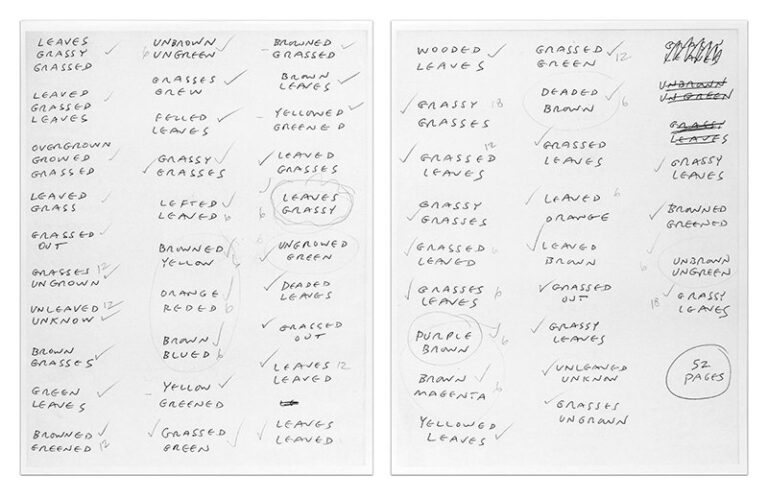 LEAVES
GRASSY
GRASSED
LEAVED
GRASSED
LEAVES
OVERGROWN
GROWED
GRASSED
LEAVED
GRASS
GRASSED
OUT
GRASSES 12
UNGROWN
UNLEAVED 12
UNKNOW
BROWN
GRASSES
GREEN
LEAVES
BROWNED
GREENED 12
UNBROWN
6 UNGREEN
GRASSES
GREW
FELLED
LEAVES
GRASSY
GRASSES
LEFTED
LEAVED 6
BROWNED
YELLOW 6
ORANGE
REDED 6
BROWN
BLUED 6
YELLOW
GREENED
GRASSED
GREEN
BROWNED
GRASSED
BROWN
LEAVES
YELLOWED
GREENED
LEAVED
GRASSES
LEAVES
6 GRASSY
UNGROWED
GREEN
DEADED
LEAVES
GRASSED
OUT
LEAVES 12
LEAVED
LEAVES
LEAVED
WOODED
LEAVES
GRASSY 18
GRASSES
12
GRASSED
LEAVES
GRASSY
GRASSES
GRASSED 6
LEAVED
GRASSES 6
LEAVES
PURPLE 6
BROWN
BROWN 6
MAGENTA
YELLOWED
LEAVES
GRASSED 12
GREEN
DEADED
BROWN 6
GRASSED
LEAVES
LEAVED 6
ORANGE
LEAVED
BROWN 6
GRASSED
OUT
GRASSY
LEAVES
UNLEAVED
UNKNOW
GRASSES
UNGROWN
LEAVES
UNBROWN
UNGREEN
GRASSY
LEAVES
GRASSY
LEAVES
BROWNED
GREENED
6 UNBROWN
UNGREEN
18 GRASSY
LEAVES
52
PAGES